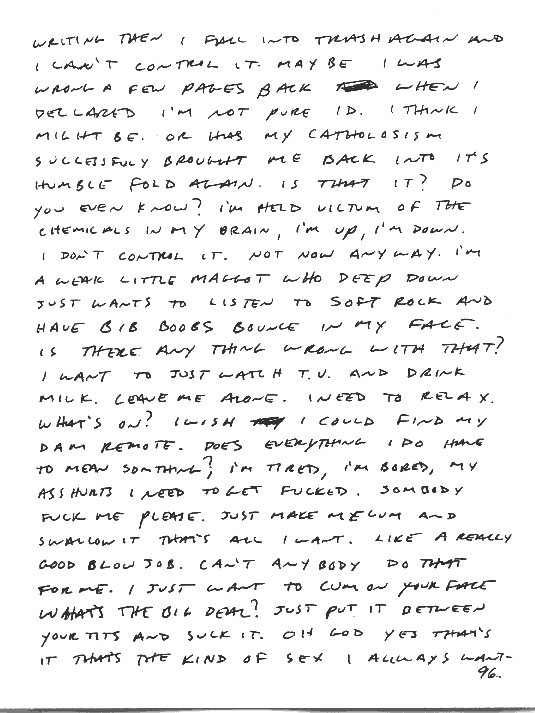 WRITING THEN I FALL INTO TRASH AGAIN AND
I CAN'T CONTROL IT. MAY BE I WAS
WRONG A FEW PAGES BACK WHEN I
DECLARED I'M NOT PURE ID. I THINK I
MIGHT BE. OR HAS MY CATHOLOSISM
SUCCESSFULY BROUGHT ME BACK INTO IT'S
HUMBLE FOLD AGAIN. IS THAT IT? DO
YOU EVEN KNOW? I'M HELD VICTUM OF THE
CHEMICALS IN MY BRAIN, I'M UP, I'M DOWN.
I DON'T CONTROL IT. NOT NOW ANY WAY. I'M
A WEAK LITTLE MAGGOT WHO DEEP DOWN
JUST WANTS TO LISTEN TO SOFT ROCK AND
HAVE BIB BOOBS BOUNCE IN MY FACE.
IS THERE ANY THING WRONG WITH THAT?
I WANT TO JUST WATCH T.V. AND DRINK
MILK. LEAVE ME ALONE. I NEED TO RELAX.
WHAT'S ON? I WISH I COULD FIND MY
DAM REMOTE. DOES EVERYTHING I DO HAVE
TO MEAN SOMTHING? I'M TIRED, I'M BORED, MY
ASS HURTS I NEED TO GET FUCKED. SOMBODY
FUCK ME PLEASE. JUST MAKE ME CUM AND
SWALLOW IT THAT'S ALL I WANT. LIKE A REALLY
GOOD BLOW JOB. CAN'T ANY BODY DO THAT
FOR ME. I JUST WANT TO CUM ON YOUR FACE
WHATS THE BIG DEAL? JUST PUT IT BETWEEN
YOUR TITS AND SUCK IT. OH GOD YES THAT'S
IT THAT'S THE KIND OF SEX I ALLWAYS WANT-
96.